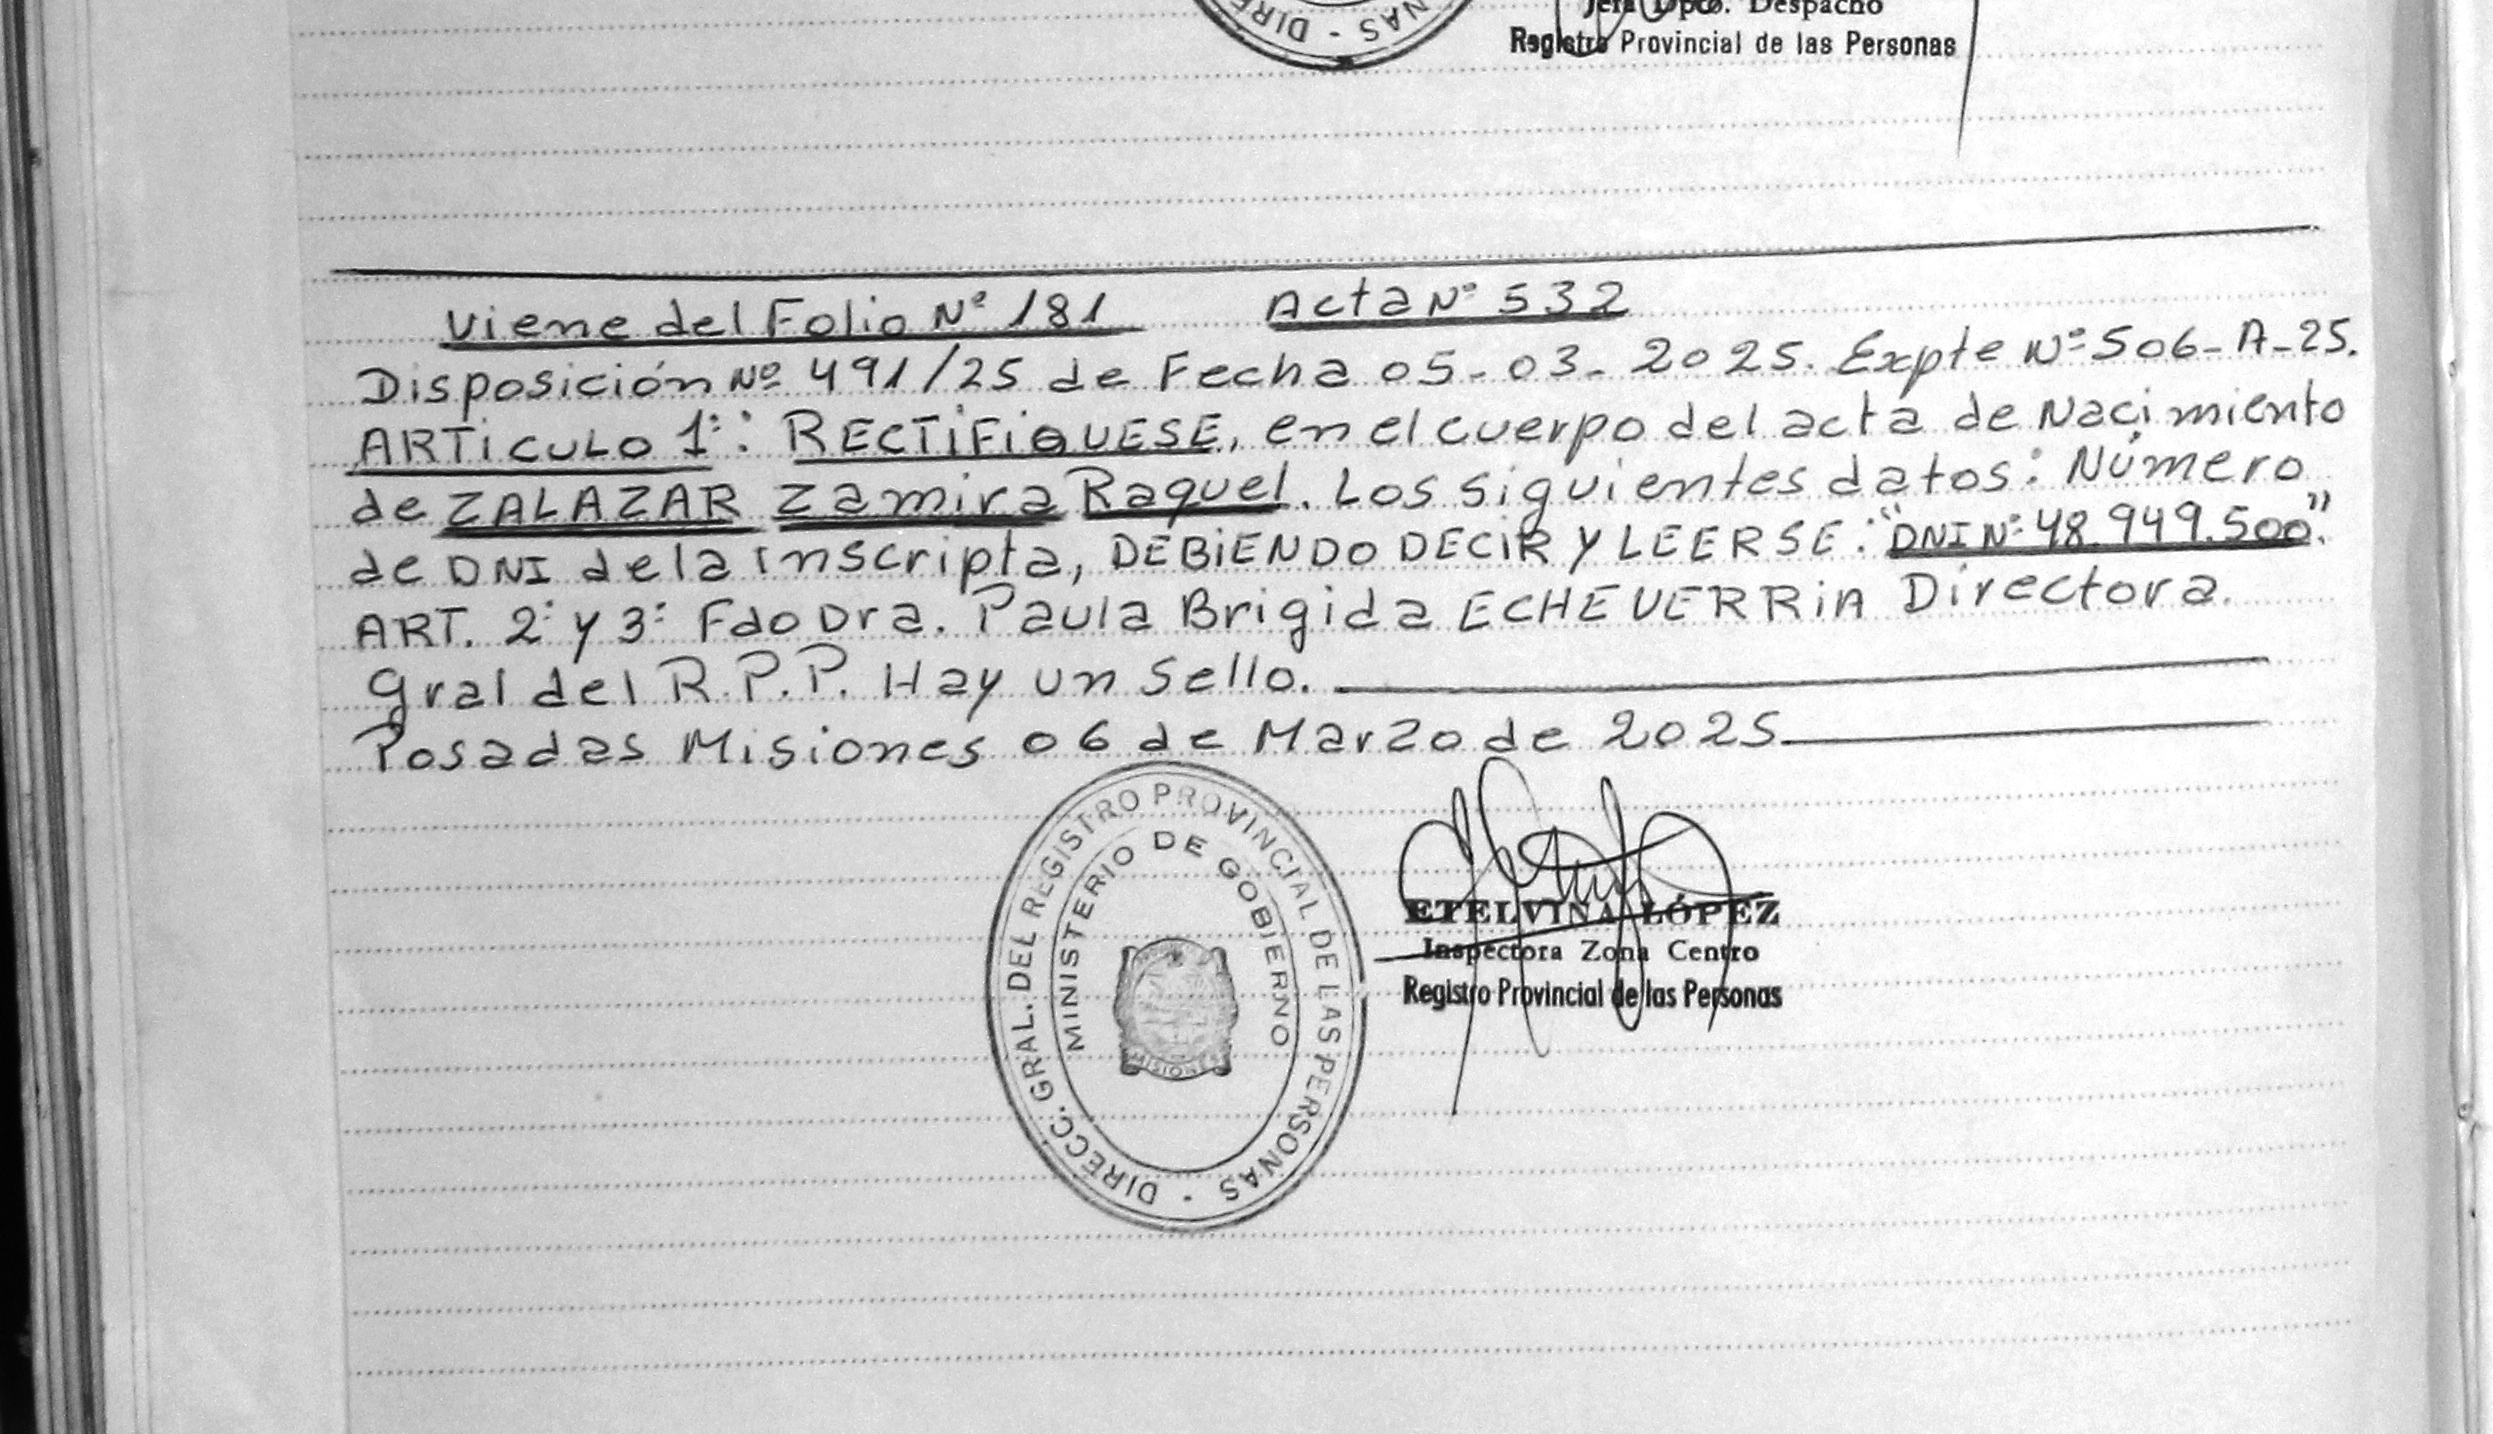 Jefa Dpto. Despacho
Registro Provincial de las Personas
NAS - DIRE
Viene del Folio Nº 181 Acta Nº 532
Disposición Nº 491/25 de Fecha 05-03-2025. Expte Nº 506-A-25.
ARTiCULO 1º: RECTiFiQUESE, en el cuerpo del acta de Nacimiento
de ZALAZAR Zamira Raquel. Los siguientes datos: Número
de DNI de la inscripta, DEBiENDO DECiR Y LEERSE: "DNI Nº 48.949.500".
ART. 2º y 3º Fdo Dra. Paula Brigida ECHEVERRiA Directora
gral del R.P.P. Hay un sello.
Posadas Misiones 06 de Marzo de 2025
DIRECC. GRAL. DEL REGISTRO PROVINCIAL DE LAS PERSONAS -
MINISTERIO DE GOBIERNO
MISIONES
ETELVINA LÓPEZ
Inspectora Zona Centro
Registro Provincial de las Personas